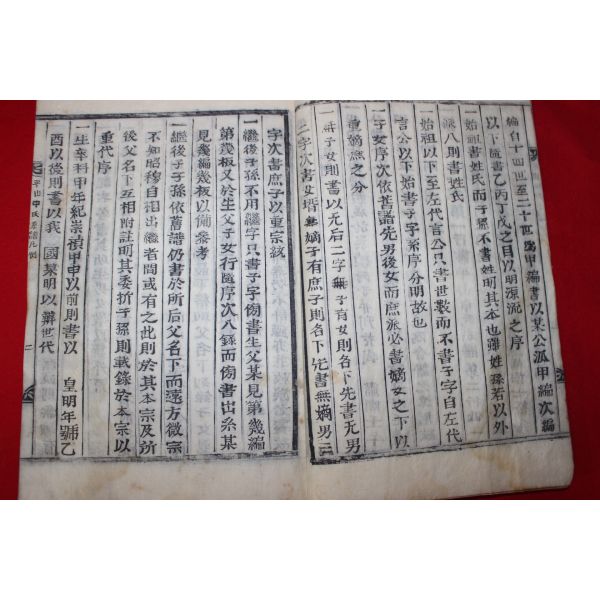 編自十四世至二十四爲甲編書以某公派甲編次編
以下隨書乙丙丁戊之目以明源流之序
一始祖書姓氏而子孫不書姓明其本也雖姓孫若以外
派入則書姓氏
一始祖以下至左代言公只書世數而不書子字自左代
言公以下始書子字系序分明故也
一子女序次依舊譜先男後女而庶派必書嫡女之下以
重嫡庶之分
一無子女則書以无后二字無子有女則名下先書无男
二字次書女壻無嫡子有庶子則名下先書無嫡男三
字次書庶子以重宗統
一繼後子孫不用繼字只書子字傍書生父某見第幾編
第幾板又於生父子女行隨序次入錄而傍書出系某
見幾編幾板以備參考
一繼後子子孫依舊譜仍書於所后父名下而遠方微宗
不知昭穆自相出繼者間或有之此則於其本宗及所
後父名下互相附註明其委折子孫則載錄於本宗以
重代序
一生卒科甲年紀崇禎甲申以前則書以 皇明年號乙
酉以後則書以我 國某明以辨世代
平山申氏系譜凡例 二